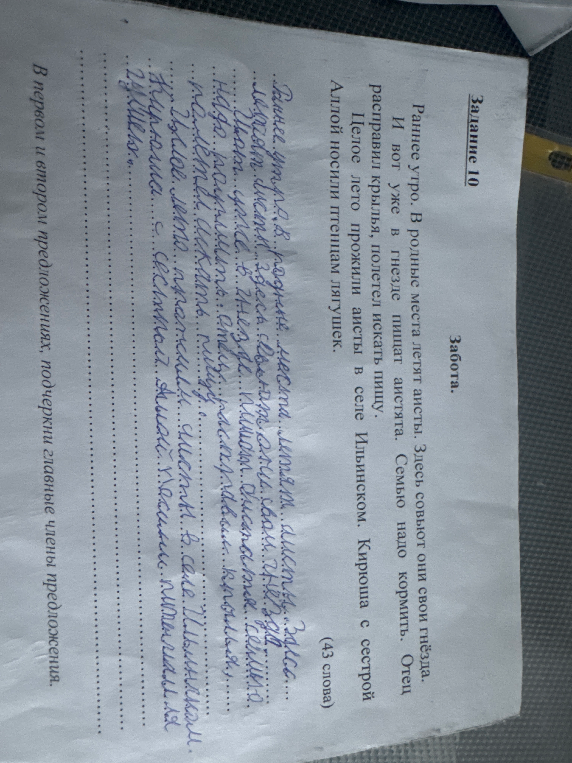 Задание 10
Забота.
Раннее утро. В родные места летят аисты. Здесь совьют они свои гнёзда.
И вот уже в гнезде пищат аистята. Семью надо кормить. Отец
расправил крылья, полетел искать пищу.
Целое лето прожили аисты в селе Ильинском. Кирюша с сестрой
Аллой носили птенцам лягушек.
(43 слова)
Ранее утро, в родные места летят аисты.
места здесь они свои гнёзда
уже в гнезде аистята
надо отец расправил крылья,
полетел искать пищу.
Целое лето прожили аисты в селе
Кирюша с сестрой Аллой носили
В первом и втором предложениях, подчеркни главные члены предложения.